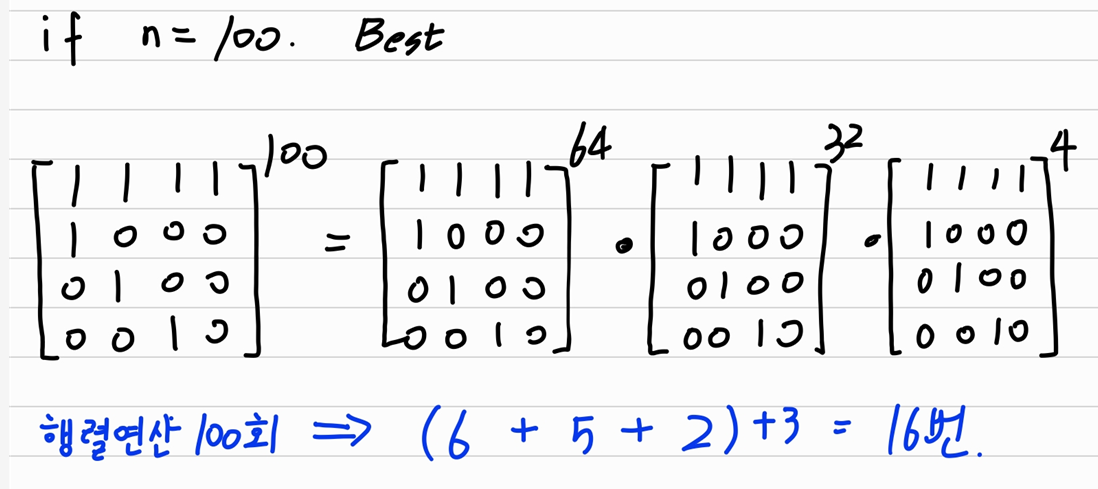 if n = 100. Best
[1 1 1 1; 1 0 0 0; 0 1 0 0; 0 0 1 0]^100 = [1 1 1 1; 1 0 0 0; 0 1 0 0; 0 0 1 0]^64 · [1 1 1 1; 1 0 0 0; 0 1 0 0; 0 0 1 0]^32 · [1 1 1 1; 1 0 0 0; 0 1 0 0; 0 0 1 0]^4
행렬연산 100회 ⇒ (6 + 5 + 2) + 3 = 16번.